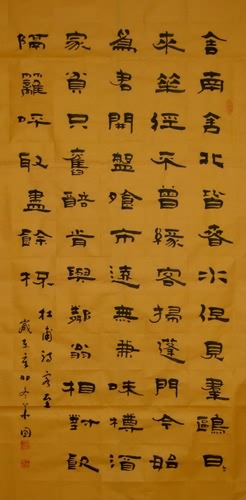 舍南舍北皆春水但見羣鷗日
來花徑不曾緣客掃蓬門今始
爲君開盤飧市遠無兼味樽酒
家貧只舊醅肯與鄰翁相對飲
隔籬呼取盡餘杯
杜甫詩客至
歲在辛卯冬